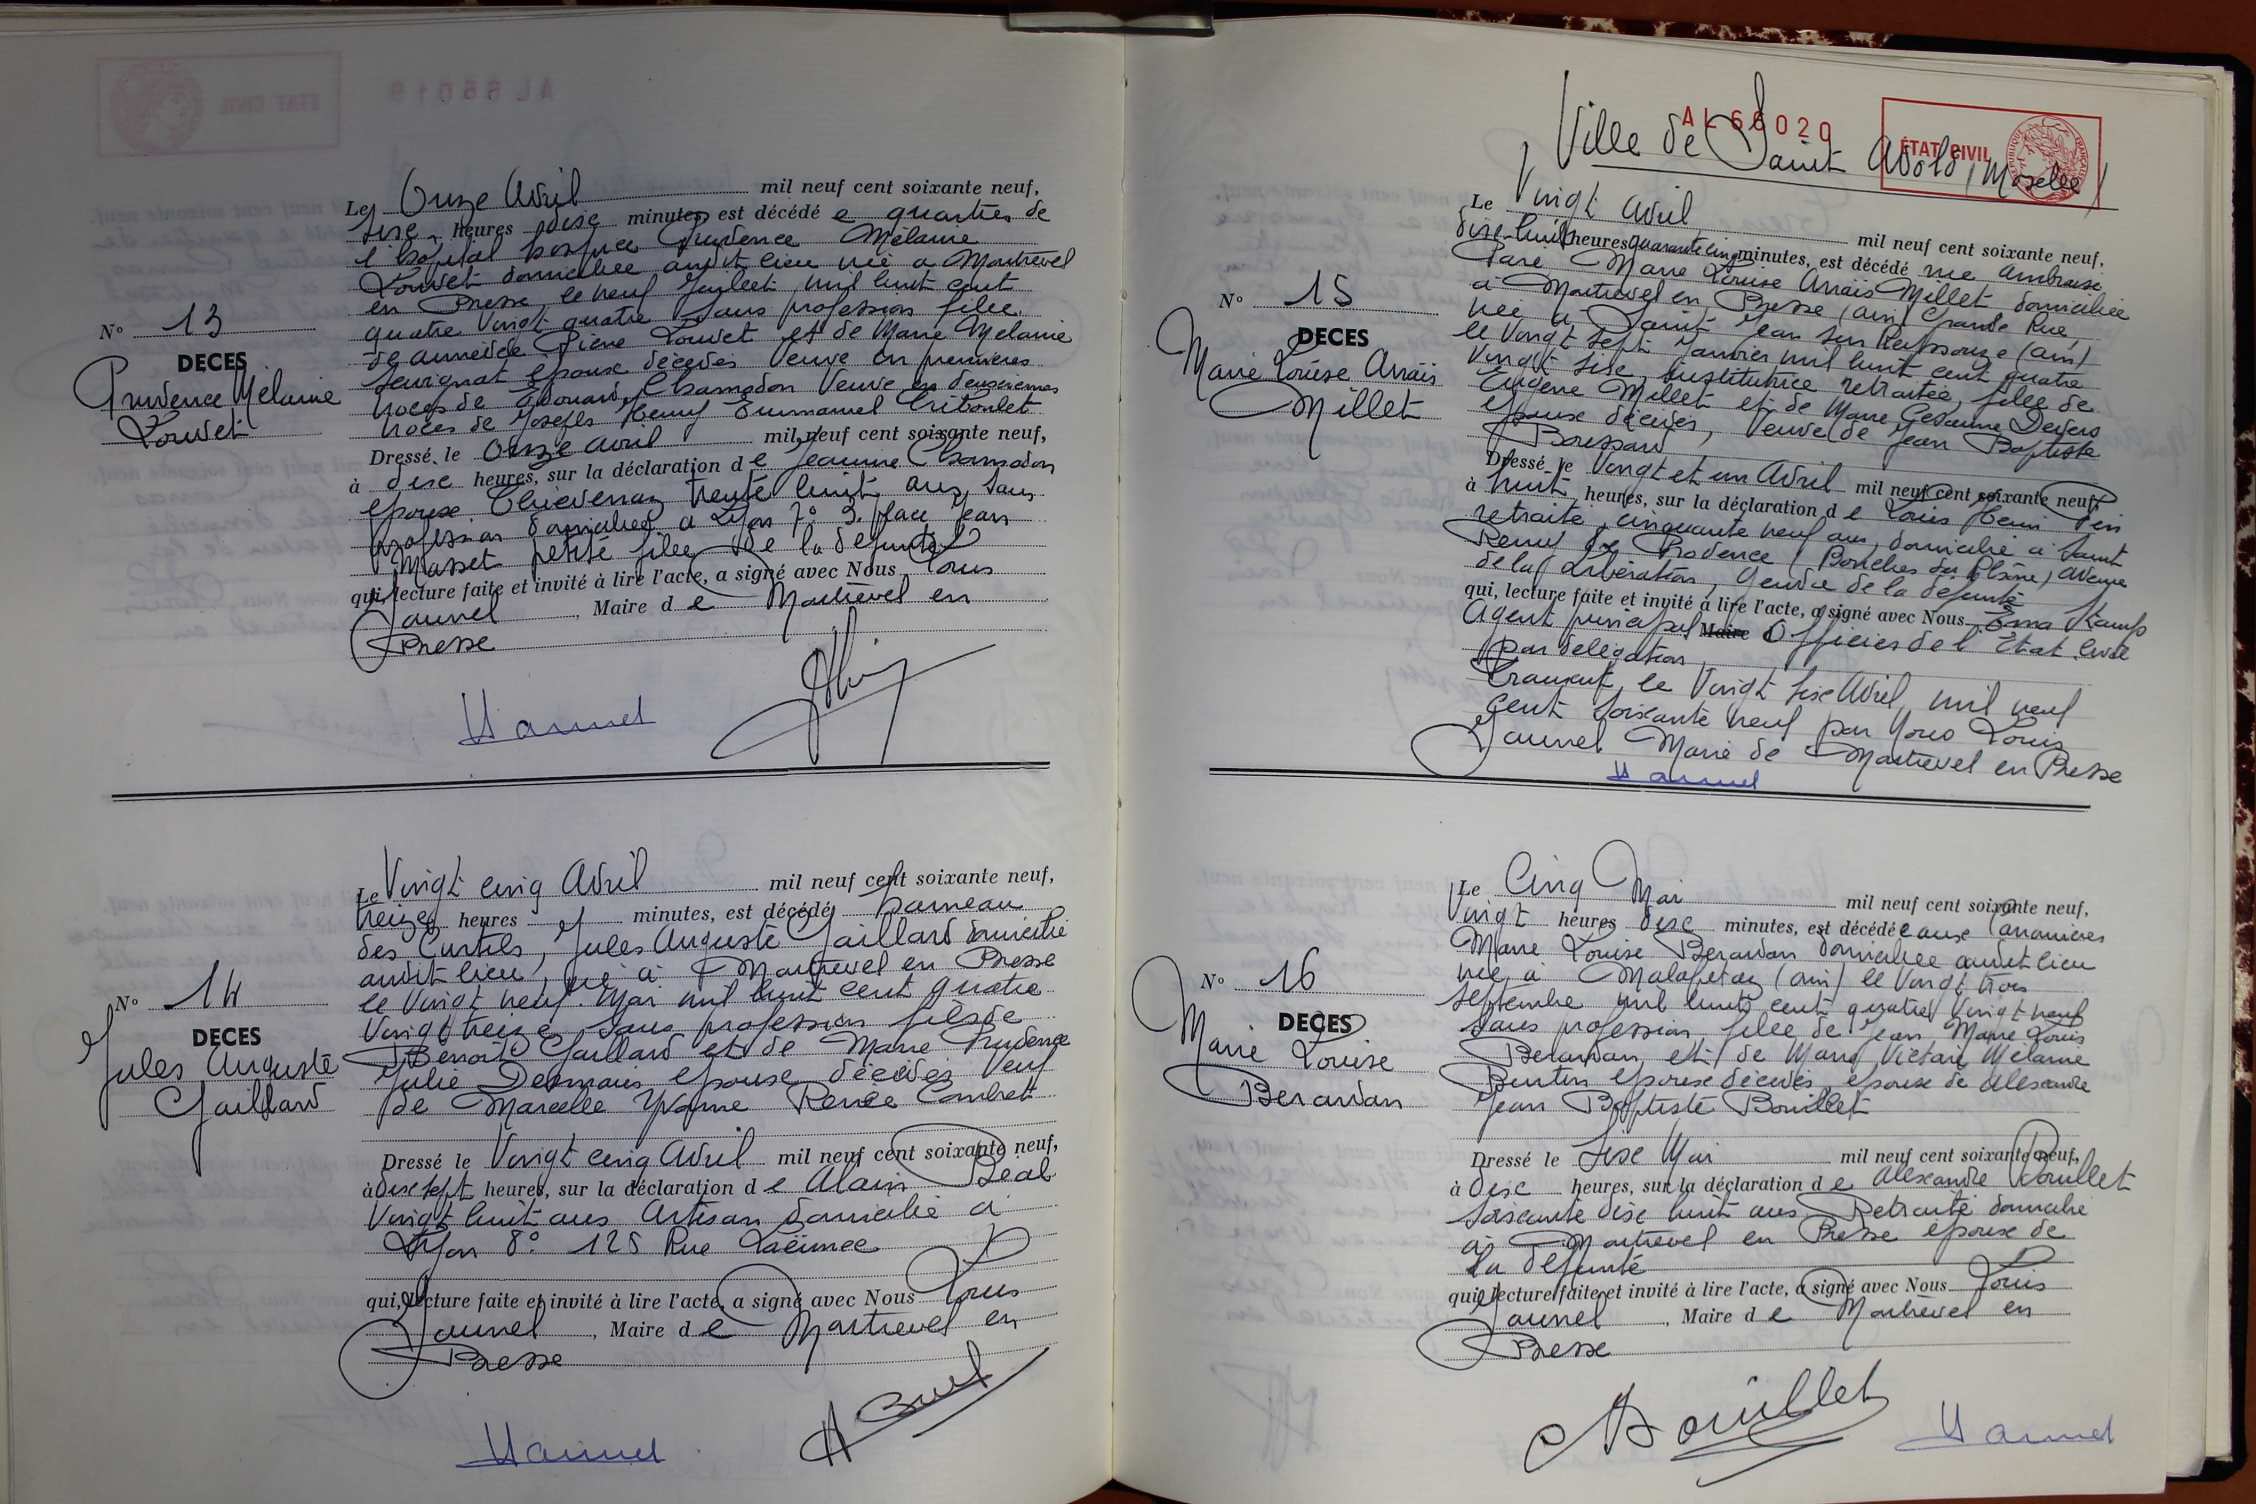 N° 13
DECES
Prudence Mélanie
Louvet
Le Onze Avril mil neuf cent soixante neuf,
Sise heures disc minutes, est décédé e quartier de
l'hopital hospice Prudence Mélanie
Louvet domiciliée audit lieu née a Montrevel
en Bresse, le neuf Juillet mil huit cent
quatre vingt quatre sans profession fille
de Pierre Louvet et de Marie Mélanie
Sevignat épouse décédés Veuve en premières
noces de Edouard Chamodon Veuve en deuxièmes
noces de Joseph Henry Emmanuel Triboulet
Dressé le Onze avril mil neuf cent soixante neuf,
à disc heures, sur la déclaration d e Jeanne Chamodon
épouse Thievenaz trente huit ans, sans
profession domiciliée a Lyon 7° 3. place Jean
Masset petite fille de la défunte
qui, lecture faite et invité à lire l'acte, a signé avec Nous Louis
Jaunel, Maire d e Montrevel en
Bresse
N° 14
DECES
Jules Auguste
Gaillard
Le Vingt cinq Avril mil neuf cent soixante neuf,
treize heures minutes, est décédé hameau
des Curtils, Jules Auguste Gaillard domicilié
audit lieu, né à Montrevel en Bresse
le vingt neuf Mai mil huit cent quatre
Vingt treize sans profession fils de
Benoît Gaillard et de Marie Prudence
Julie Desmaris épouse décédés Veuf
de Marcelle Yvonne Renée Combret
Dressé le Vingt cinq Avril mil neuf cent soixante neuf,
à disc sept heures, sur la déclaration d e Alain Béal
Vingt huit ans Artisan domicilié à
Lyon 8° 125 Rue Laënnec
qui, lecture faite et invité à lire l'acte, a signé avec Nous Louis
Jaunel, Maire d e Montrevel en
Bresse
AL 66020
ÉTAT CIVIL
Ville de Saint Avold (Moselle)
N° 15
DECES
Marie Louise Anaïs
Millet
Le Vingt Avril mil neuf cent soixante neuf,
disc-huit heures quarante cinq minutes, est décédé rue Ambroise
Paré Marie Louise Anaïs Millet domiciliée
à Montrevel en Bresse (ain) Grande Rue,
née à Saint Jean sur Reyssouze (ain)
le vingt sept Janvier mil huit cent quatre
Vingt sise, institutrice retraitée, fille de
Eugène Millet et de Marie Devers
épouse décédés, Veuve de Jean Baptiste
Boussard
Dressé le Vingt et un Avril mil neuf cent soixante neuf,
à huit heures, sur la déclaration d e Louis Henri
retraité, cinquante neuf ans, domicilié à Saint
Remy de Provence (Bouches du Rhône) avenue
de la Libération, gendre de la défunte
qui, lecture faite et invité à lire l'acte, a signé avec Nous Kamp
Agent principal Maire Officier de l'Etat Civil
par délégation
Transcrit le Vingt sise Avril, mil neuf
cent soixante neuf par Nous Louis
Jaunel Maire de Montrevel en Bresse
N° 16
DECES
Marie Louise
Berardan
Le Cinq Mai mil neuf cent soixante neuf,
Vingt heures disc minutes, est décédé e aux Cananières
Marie Louise Berardan domiciliée audit lieu
née à Malafretaz (ain) le Vingt trois
Septembre mil huit cent quatre Vingt neuf
sans profession fille de Jean Marie Louis
Berardan et de Marie Victorie Mélanie
Burtin épouse décédés, épouse de Alexandre
Jean Baptiste Bouillet
Dressé le Sise Mai mil neuf cent soixante neuf,
à disc heures, sur la déclaration d e Alexandre Bouillet
soixante disc huit ans Retraité domicilié
à Montrevel en Bresse épouse de
la défunte
qui, lecture faite et invité à lire l'acte, a signé avec Nous Louis
Jaunel, Maire d e Montrevel en
Bresse
Bouillet